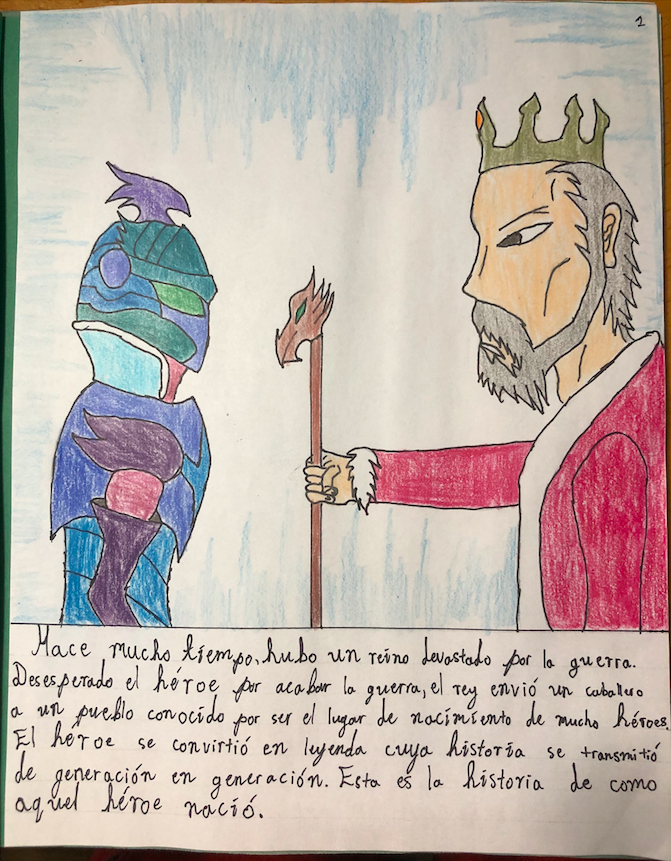 1
Hace mucho tiempo, hubo un reino devastado por la guerra.
Desesperado el héroe por acabar la guerra, el rey envió un caballero
a un pueblo conocido por ser el lugar de nacimiento de mucho héroes.
El héroe se convirtió en leyenda cuya historia se transmitió
de generación en generación. Esta es la historia de como
aquel héroe nació.